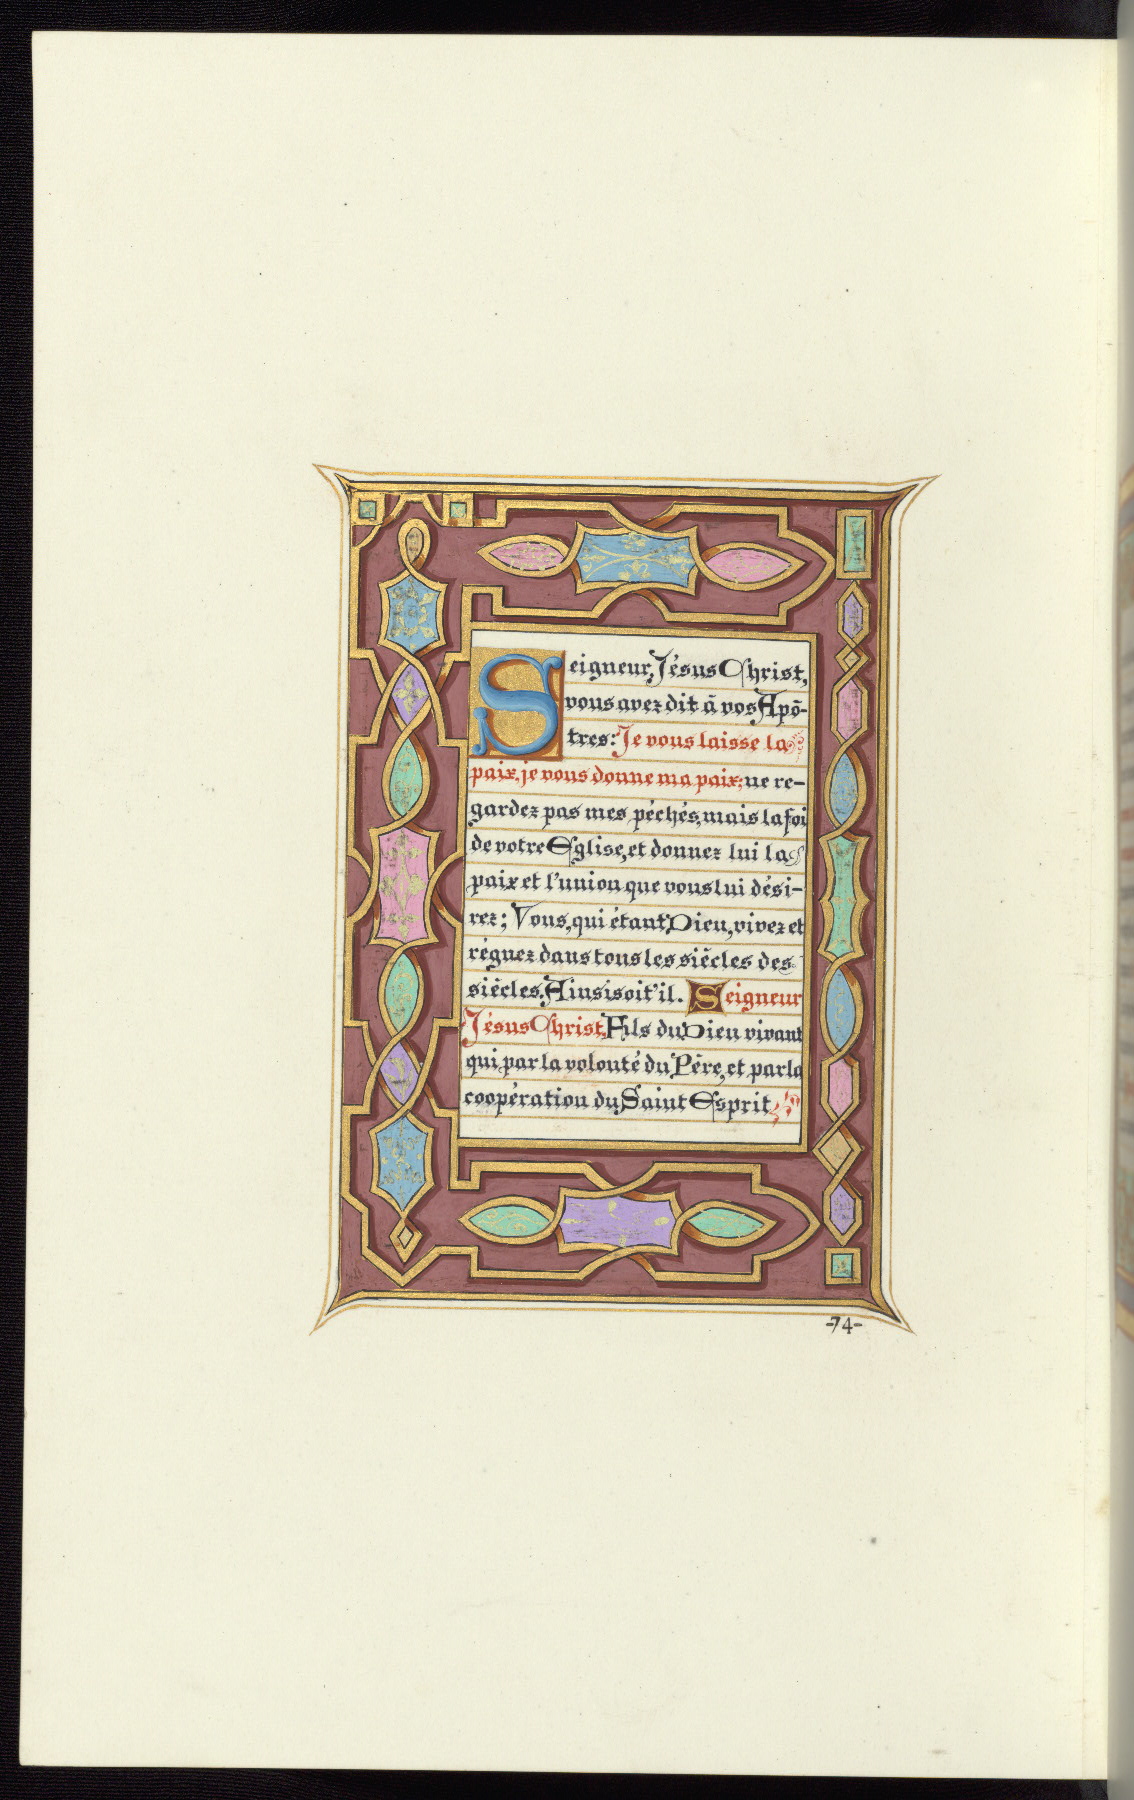 Seigneur, Jésus Christ,
vous avez dit à vos Apô-
tres: Je vous laisse la
paix, je vous donne ma paix; ne re-
gardez pas mes péchés, mais la foi
de votre Eglise, et donnez lui la
paix et l'union que vous lui dési-
rez; Vous, qui étant Dieu, vivez et
régnez dans tous les siècles des
siècles. Ainsi soit'il. Seigneur
Jésus Christ, Fils du Dieu vivant
qui par la volonté du Père, et par la
coopération du Saint Esprit,
-74-